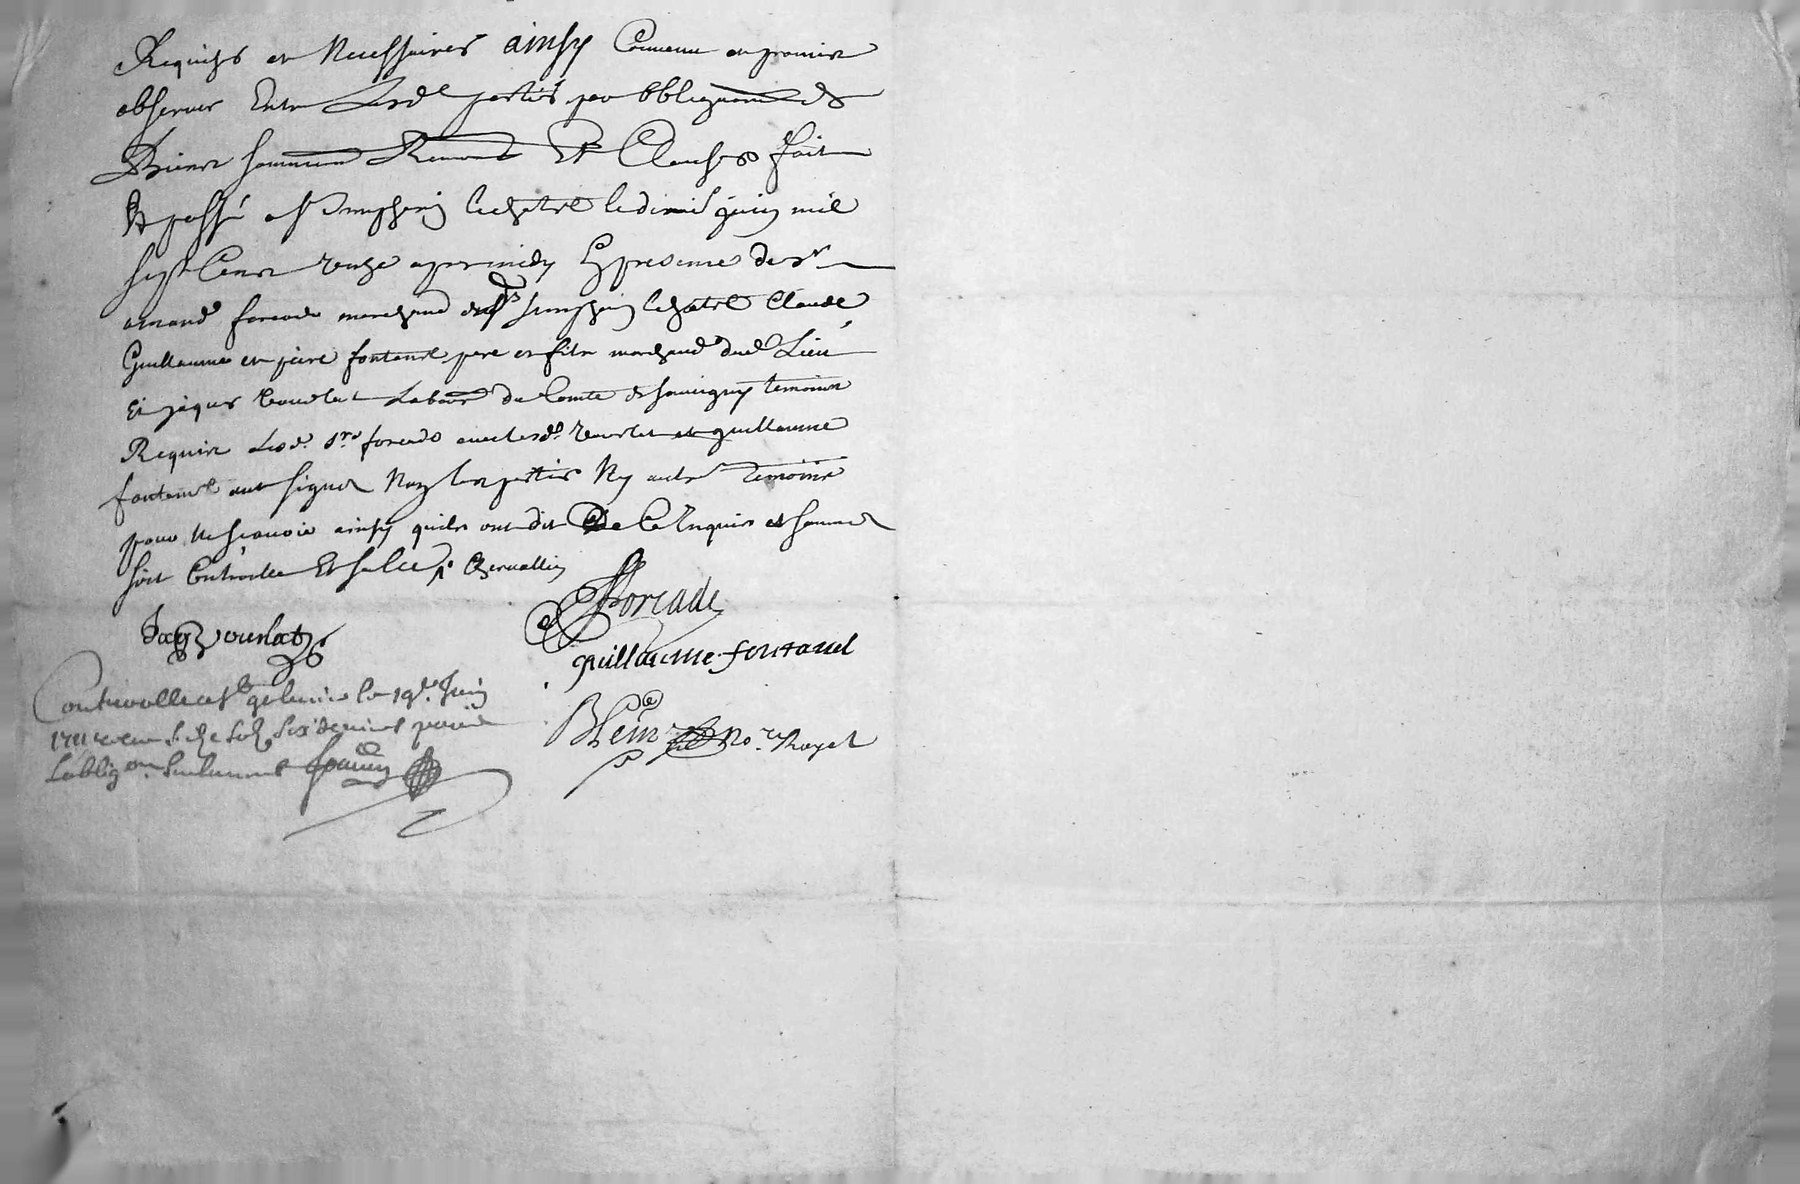 Requises et Necessaires ainsy Convenu et promis
observer Entre Lesd parties par obbligation de
Biens soumission Renont Et Clauses fait
Et passé a St simphorien lechatel le dixie juin mil
sept Cens unze apres midy En presence de sr
amand forcade marchand de St simphorien lechatel Claude
Guillaume et piere fontanel pere et fils marchand dud Lieu
Et jaques tourlat Labour du Comte de sauvigny temoins
Requis Led. sr forcade avec led. tourlat et guillaume
fontanel ont signé Non les parties Ny autre temoins
pour ne scavoir ainsy quils ont dit De Ce Enquis et sommé
soit Controlée Et scelée
Forcade
Jaq Tourlat
guillaume fontanel
Controlle a St le 19e Juin
1711 sols six deniers
Lobligaon seulement
No.re Royal